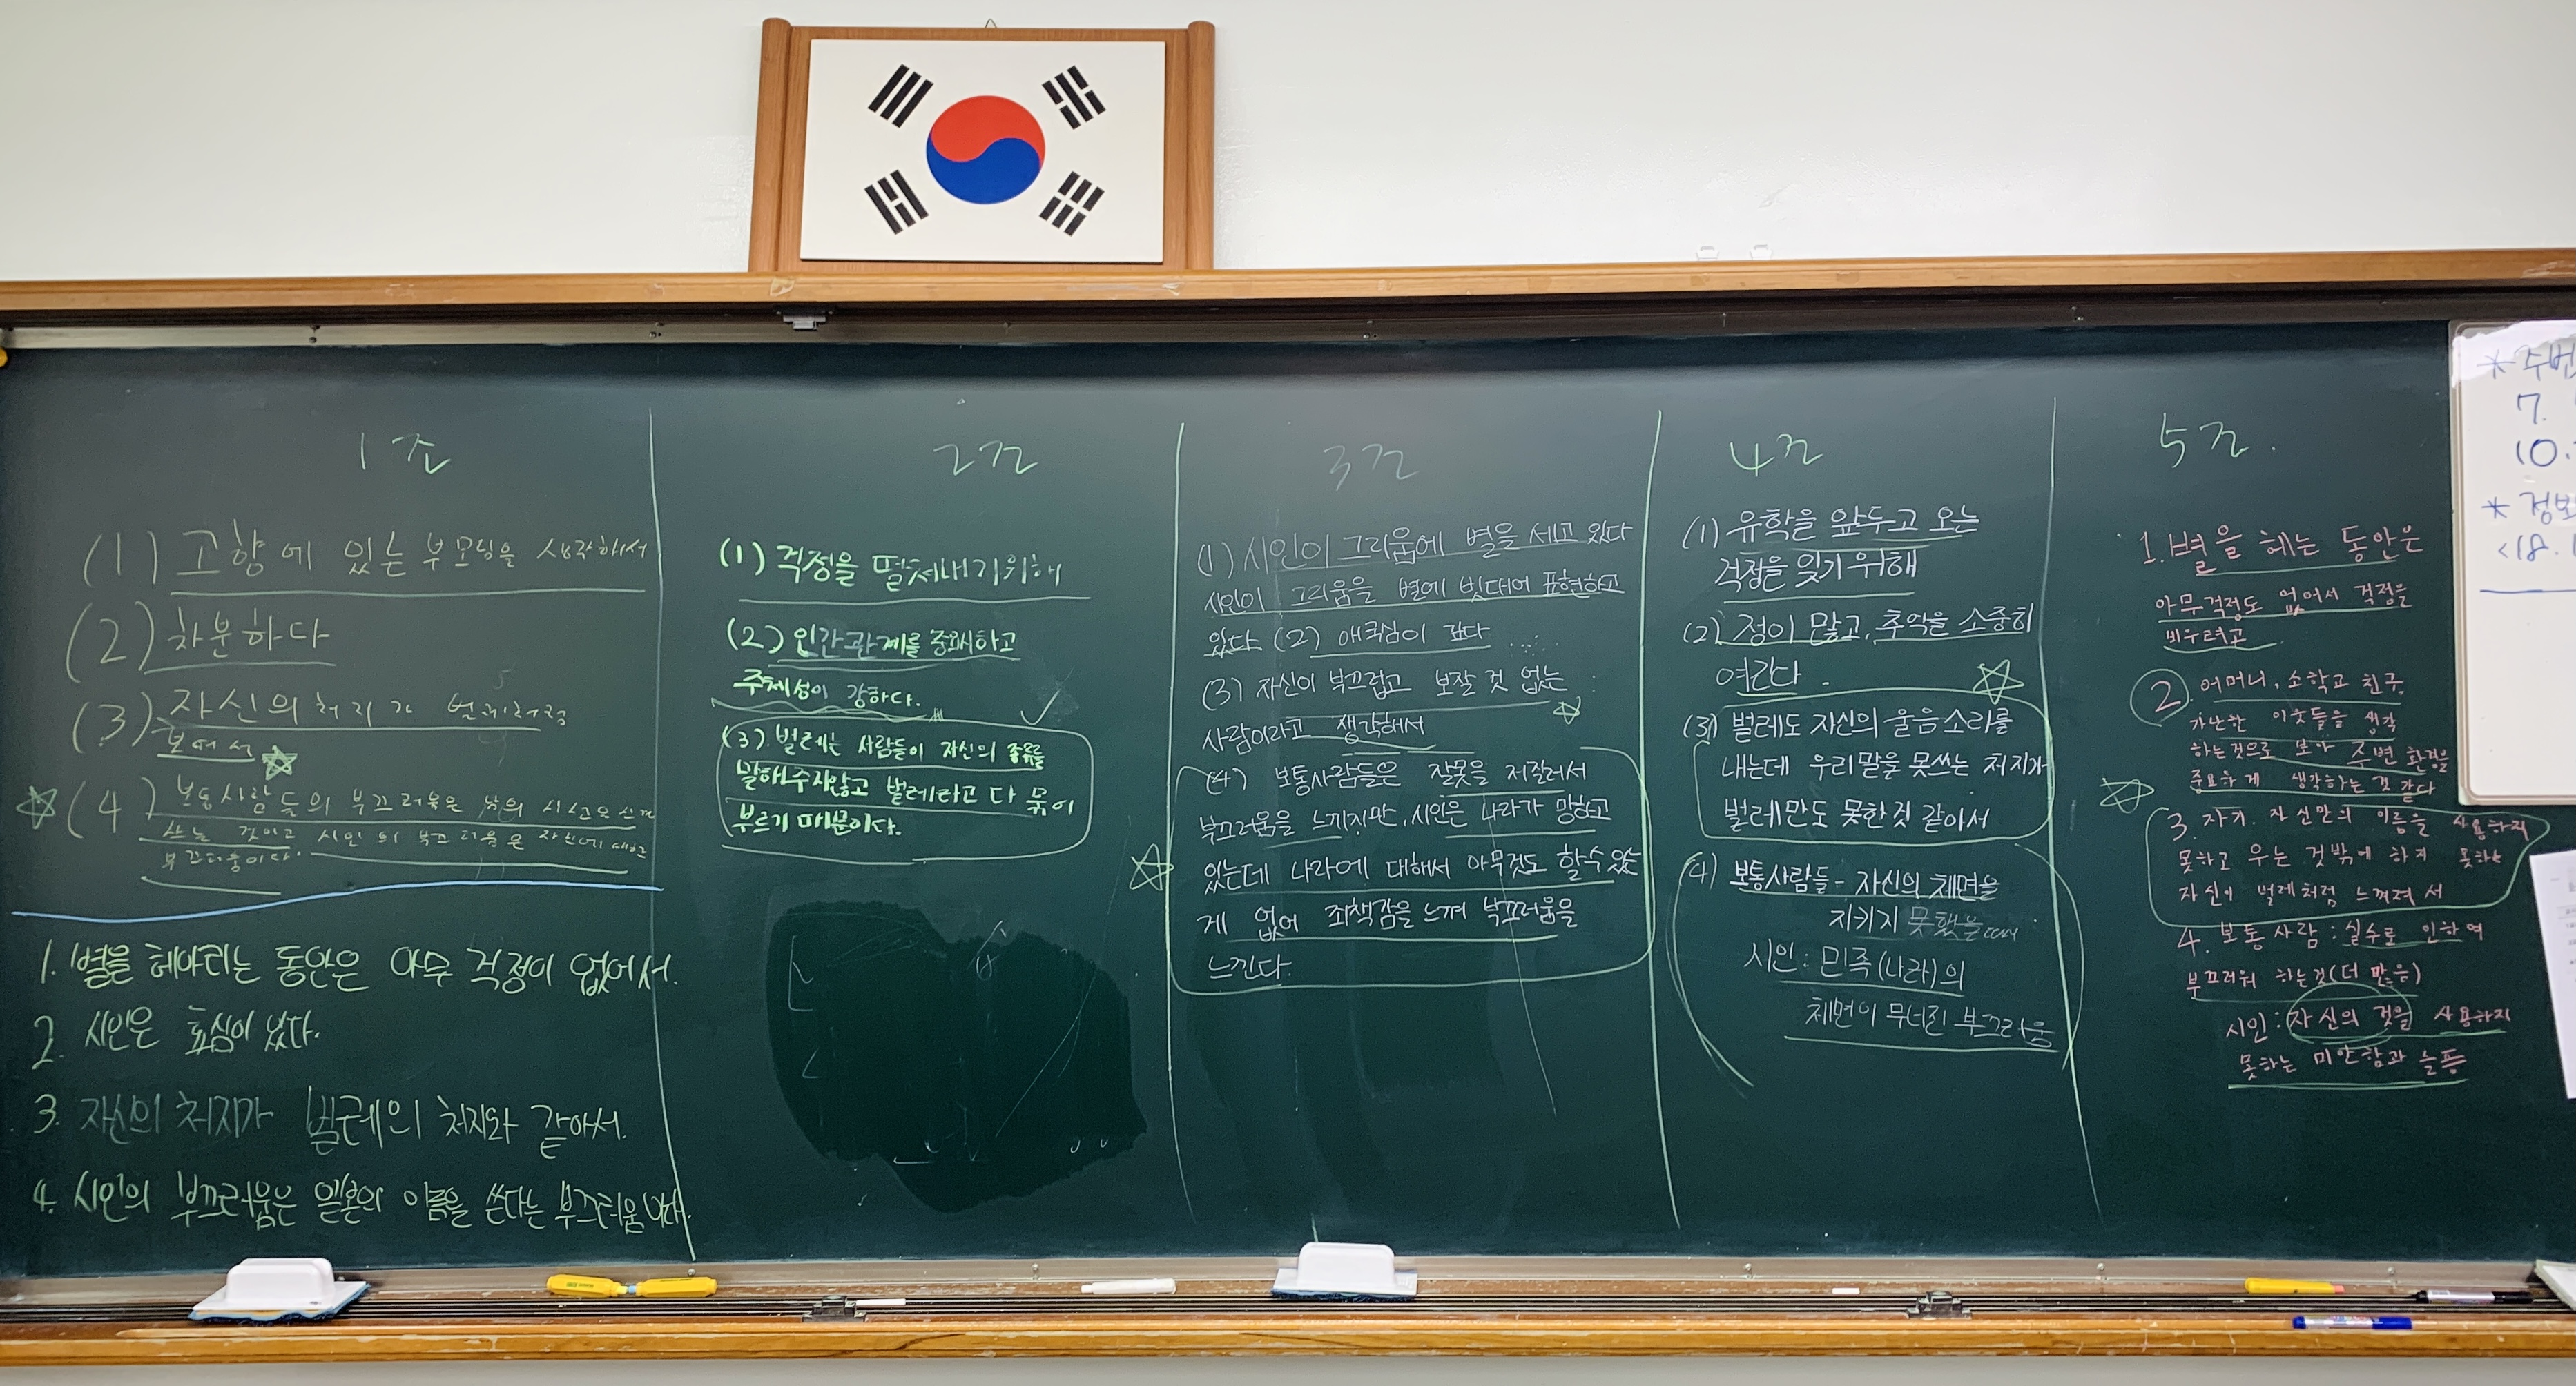 1조
(1) 고향에 있는 부모님을 생각해서
(2) 차분하다
(3) 자신의 처지가 벌레처럼
보여서
(4) 보통사람들의 부끄러움은 남의 시선으로
사는 것이고 시인의 부끄러움은 자신에 대한
부끄러움이다.
1. 별을 헤아리는 동안은 아무 걱정이 없어서.
2. 시인은 효심이 있다.
3. 자신의 처지가 벌레의 처지와 같아서.
4. 시인의 부끄러움은 일본의 이름을 쓴다는 부끄러움이다.
2조
(1) 걱정을 떨쳐내기위해
(2) 인간관계를 중요시하고
주체성이 강하다.
(3). 벌레는 사람들이 자신의 종류를
말해주지않고 벌레라고 다 묶어
부르기 때문이다.
3조
(1) 시인이 그리움에 별을 세고 있다
시인이 그리움을 별에 빗대어 표현하고
있다 (2) 애국심이 깊다
(3) 자신이 부끄럽고 보잘 것 없는
사람이라고 생각해서
(4) 보통사람들은 잘못을 저질러서
부끄러움을 느끼지만, 시인은 나라가 망하고
있는데 나라에 대해서 아무것도 할수 있는
게 없어 죄책감을 느껴 부끄러움을
느낀다.
4조
(1) 유학을 앞두고 오는
걱정을 잊기 위해
(2) 정이 많고, 추억을 소중히
여긴다.
(3) 벌레도 자신의 울음소리를
내는데 우리말을 못쓰는 처지가
벌레만도 못한 것 같아서
(4) 보통사람들 - 자신의 체면을
지키지 못했을
시인 : 민족(나라)의
체면이 무너진 부끄러움
5조.
1. 별을 헤는 동안은
아무걱정도 없어서 걱정을
비우려고
2. 어머니, 소학교 친구,
가난한 이웃들을 생각
하는것으로 보아 주변 환경을
중요하게 생각하는 것 같다
3. 자기 자신만의 이름을 사용하지
못하고 우는 것밖에 하지 못하는
자신이 벌레처럼 느껴져서
4. 보통 사람 : 실수로 인하여
부끄러워 하는것(더 많음)
시인 : 자신의 것을 사용하지
못하는 미안함과 슬픔
* 주번
7.
10.
* 정보
<18.